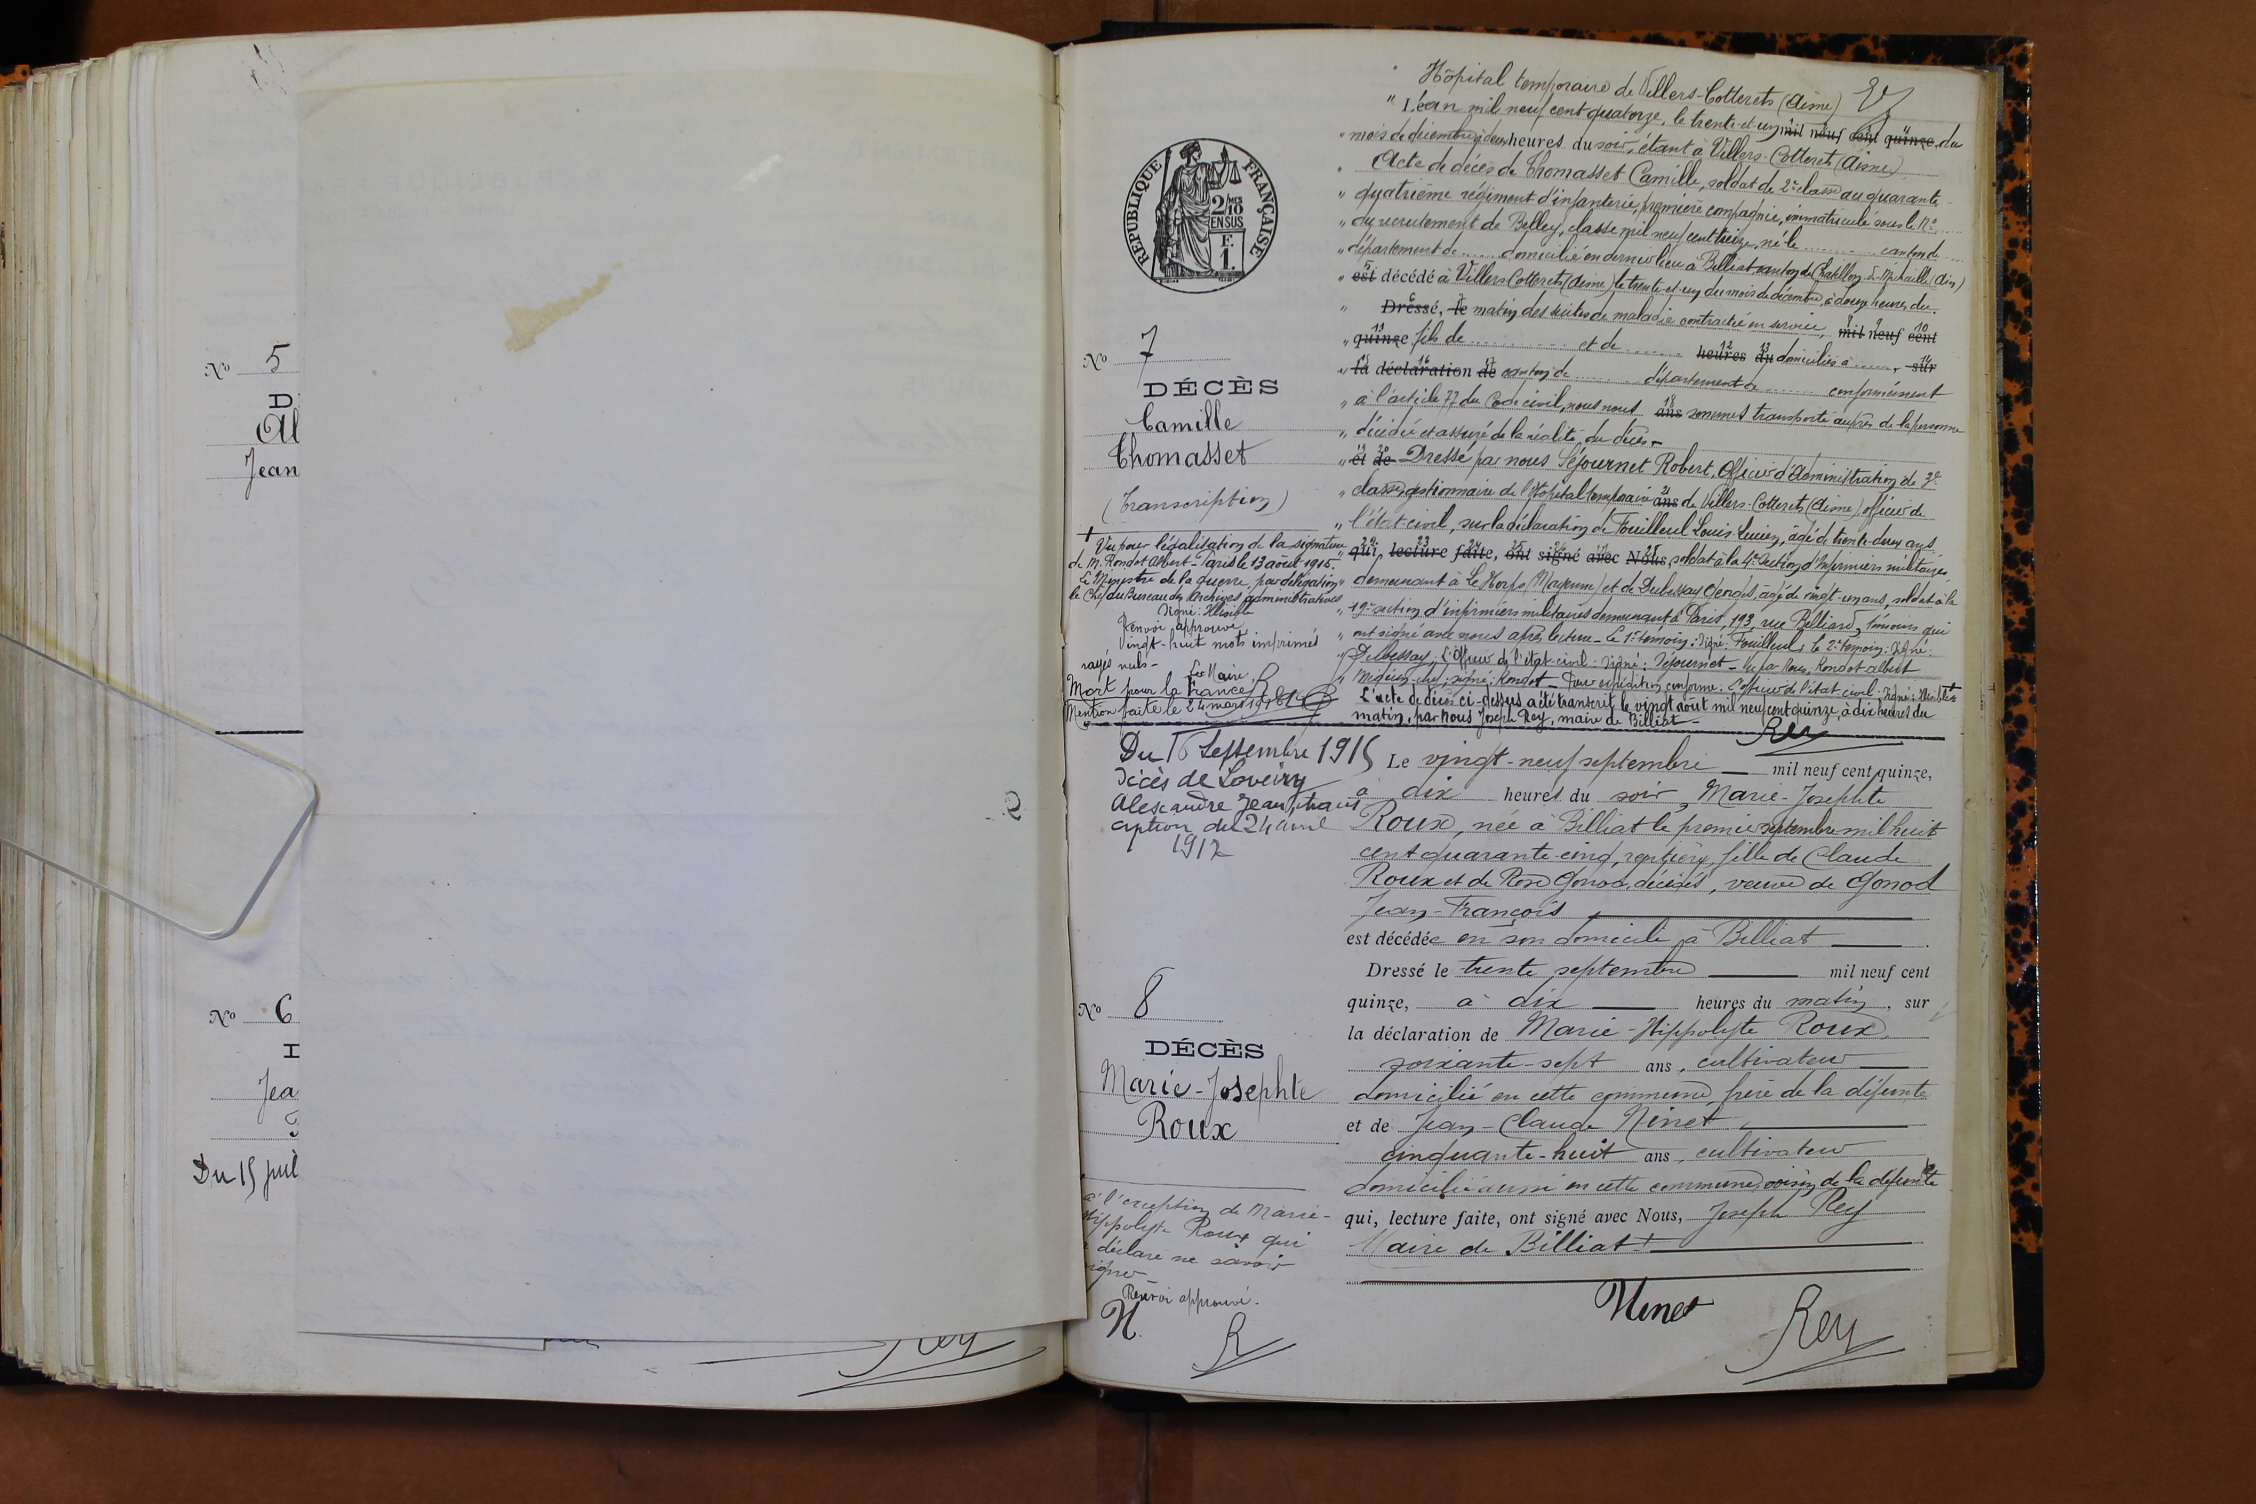 No 5
D
Al
Jean
No 6
Jea
Du 15 juil
Rey
REPUBLIQUE FRANÇAISE
2/10 MES EN SUS
F.
1.
No 7
DÉCÈS
Camille
Thomasset
(Transcription)
+ Vu pour légalisation de la signature
de M. Rondot Albert - Paris le 13 août 1915.
Le Ministre de la guerre, par délégation
le Chef du Bureau des Archives administratives
Signé:
Renvoi approuvé
Vingt-huit mots imprimés
rayés nuls -
Le Maire
R
Mort pour la France
Mention faite le 24 mars 1916
Hôpital temporaire de Villers-Cotterets (Aisne)
" L'an mil neuf cent quatorze, le trente-et-un mil neuf cent quinze, du
" mois de décembre à deux heures du soir, étant à Villers-Cotterets (Aisne)
Acte de décès de Thomasset Camille, soldat de 2e classe au quarante-
" quatrième régiment d'infanterie, première compagnie, immatriculé sous le No
" du recrutement de Belley, classe mil neuf cent treize, né le ........ canton de
" département de ...... domicilié en dernier lieu à Billiat canton de Chatillon-de-Michaille (Ain)
" est décédé à Villers Cotterets (Aisne) le trente-et-un du mois de décembre, à douze heures du
" Dressé, le matin des suites de maladie contractée en service, mil neuf cent
" quinze fils de ........ et de ........ heures du domiciliés à ......, sur
" la déclaration de canton de ........ département de ........ conformément
" à l'article 77 du Code civil, nous nous ans sommes transporté auprès de la personne
" décédée et assuré de la réalité du décès.
" et de Dressé par nous Séjournet Robert, Officier d'Administration de 3e
" classe, gestionnaire de l'Hôpital temporaire ans de Villers-Cotterets (Aisne) officier de
" l'état-civil, sur la déclaration de Fouilleul Louis Lucien, âgé de trente-deux ans
" qui, lecture faite, ont signé avec Nous, soldat à la 4e Section d'Infirmiers militaires
" demeurant à Le Horps (Mayenne) et de Dubessay Georges, âgé de vingt-un ans, soldat à la
" 19e section d'infirmiers militaires demeurant à Paris, 193, rue Belliard, témoins qui
" ont signé avec nous après lecture - Le 1er témoin: Signé: Fouilleul, le 2e témoin: Signé:
" Dubessay; L'Officier de l'état-civil - Signé: Séjournet - Vu par Nous, Rondot Albert
" Médecin-chef; signé: Rondot - Pour expédition conforme: l'officier de l'état civil - Signé:
L'acte de décès ci-dessus a été transcrit le vingt août mil neuf cent quinze, à dix heures du
matin, par Nous Joseph Rey, maire de Billiat -
Rey
Du 16 Septembre 1915
Décès de Loveiry
Alexandre Jean, trans
cription du 24 avril
1917
No 8
DÉCÈS
Marie-Josephte
Roux
à l'exception de Marie-
Hippolyte Roux qui
déclare ne savoir
signer -
Renvoi approuvé.
N. R
Le vingt-neuf septembre mil neuf cent quinze,
à dix heures du soir, Marie-Josephte
Roux, née à Billiat le premier septembre mil huit
cent quarante-cinq, rentière, fille de Claude
Roux et de Rose Gonod, décédés, veuve de Gonod
Jean-François
est décédée en son domicile à Billiat
Dressé le trente septembre mil neuf cent
quinze, à dix heures du matin, sur
la déclaration de Marie-Hippolyte Roux,
soixante-sept ans, cultivateur
domicilié en cette commune, frère de la défunte
et de Jean-Claude Ninet
cinquante-huit ans, cultivateur
domicilié aussi en cette commune, voisin de la défunte
qui, lecture faite, ont signé avec Nous, Joseph Rey
Maire de Billiat +
Ninet Rey